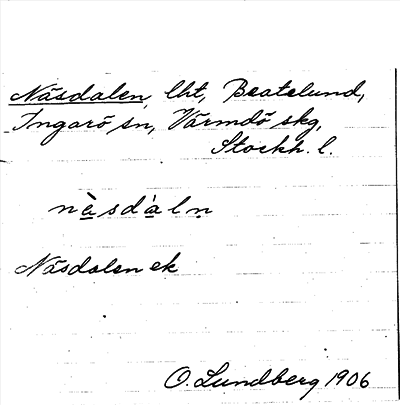 Näsdalen, lht, Beatelund,
Ingarö sn, Värmdö skg,
Stockh. l.
nä̀sdàln
Näsdalen ek
O. Lundberg 1906